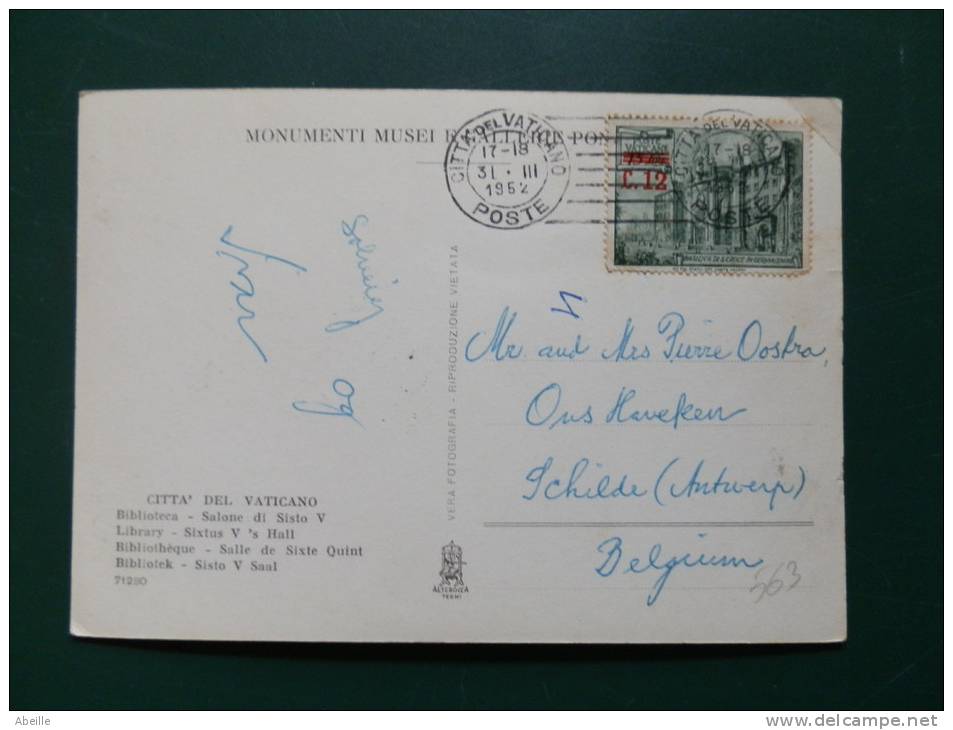 MONUMENTI MUSEI E GALLERIE PON
CITTA DEL VATICANO
17-18
31 · III
1952
POSTE
CITTA DEL VATICANO
17-18
POSTE
C.12
BASILICA DI S. CROCE IN GERUSALEMME
og
VERA FOTOGRAFIA - RIPRODUZIONE VIETATA
Mr. and Mrs Pierre Oostra,
Ons Haveken
Schilde (Antwerp)
Belgium
563
CITTA' DEL VATICANO
Biblioteca - Salone di Sisto V
Library - Sixtus V 's Hall
Bibliothèque - Salle de Sixte Quint
Bibliotek - Sisto V Saal
71280
ALTEROCCA
TERNI
Abeille
www.delcampe.net